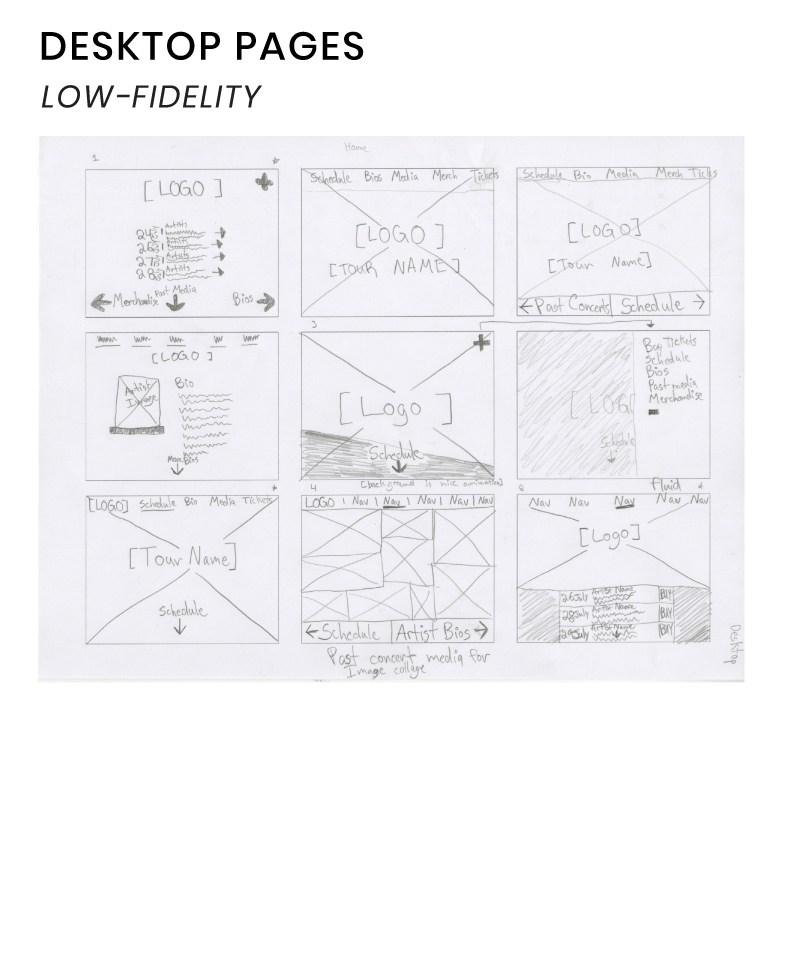 DESKTOP PAGES
LOW-FIDELITY
Home
1
[LOGO]
Artists
Artists
Artists
Artists
Past Media
Merchandise
Bios
Schedule Bios Media Merch Tickets
[LOGO]
[TOUR NAME]
Schedule Bio Media Merch Ticks
[LOGO]
[Tour Name]
← Past Concerts
Schedule →
[LOGO]
Artist
Image
Bio
More Bios
3
[Logo]
Schedule
(background is nice animation)
Buy Tickets
Schedule
Bios
Past media
Merchandise
[LOG
Schedule
[LOGO] Schedule Bio Media Tickets
[Tour Name]
Schedule
4
LOGO | Nav | Nav | Nav | Nav | Nav
← Schedule
Artist Bios →
Past concert media for
Image collage
fluid
Nav Nav Nav Nav Nav
[Logo]
26July Artist Name BUY
28July Artist Name BUY
29July Artist Name BUY
Desktop